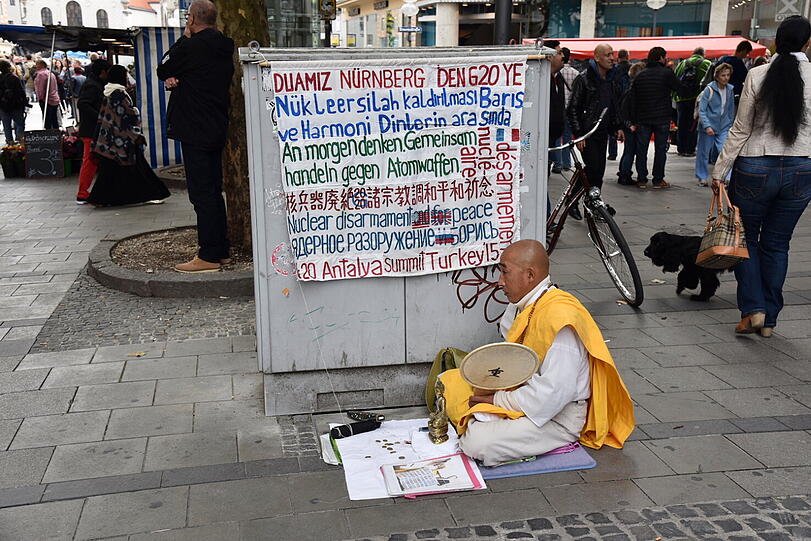 DUAMIZ NÜRNBERG DEN G20 YE
Nükleersilah kaldırılması Barıs
ve Harmoni Dinlerin arasında
An morgen denken. Gemeinsam
handeln gegen Atomwaffen
désarmement
核兵器廃絶 諸宗教調和平和祈念
Nuclear disarmament for peace
ядерное разоружение
G20 Antalya Summit Turkey 15